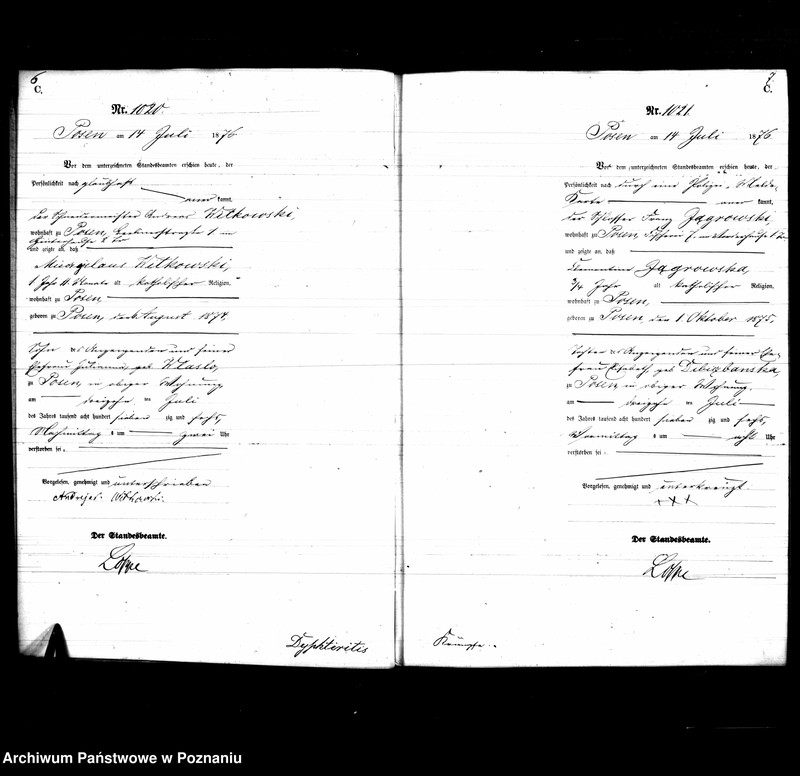 6
C.
Nr. 1020.
Posen am 14 Juli 1876
Vor dem unterzeichneten Standesbeamten erschien heute, der
Persönlichkeit nach
kannt,
der Schneidermeister Andreas Witkowski,
wohnhaft zu Posen, 1 im
und zeigte an, daß
Witkowski,
1 Jahr 11 Monate alt katholischer Religion,
wohnhaft zu Posen
geboren zu Posen, August 1874
Sohn des Anzeigenden und seiner
Ehefrau Julianna, geb.
zu Posen, in obiger Wohnung
am dreizehn ten Juli
des Jahres tausend acht hundert sieben zig und sechs,
Nachmittag s um zwei Uhr
verstorben sei.
Vorgelesen, genehmigt und unterschrieben
Der Standesbeamte.
Dyphteritis
7
C.
Nr. 1021.
Posen am 14 Juli 1876
Vor dem unterzeichneten Standesbeamten erschien heute, der
Persönlichkeit nach durch eine Polizei-Melde-
Karte kannt,
der Schlosser Franz Jagrowski
wohnhaft zu Posen,
und zeigte an, daß
Clementine Jagrowska,
3/4 Jahr alt katholischer Religion,
wohnhaft zu Posen,
geboren zu Posen, den 1. Oktober 1875,
Tochter des Anzeigenden und seiner Ehe-
frau Elisabeth geb.
zu Posen in obiger Wohnung,
am dreizehn ten Juli
des Jahres tausend acht hundert sieben zig und sechs,
Vormittag s um acht Uhr
verstorben sei.
Vorgelesen, genehmigt und unterkreuzt
+++
Der Standesbeamte.
Krämpfe.
Archiwum Państwowe w Poznaniu